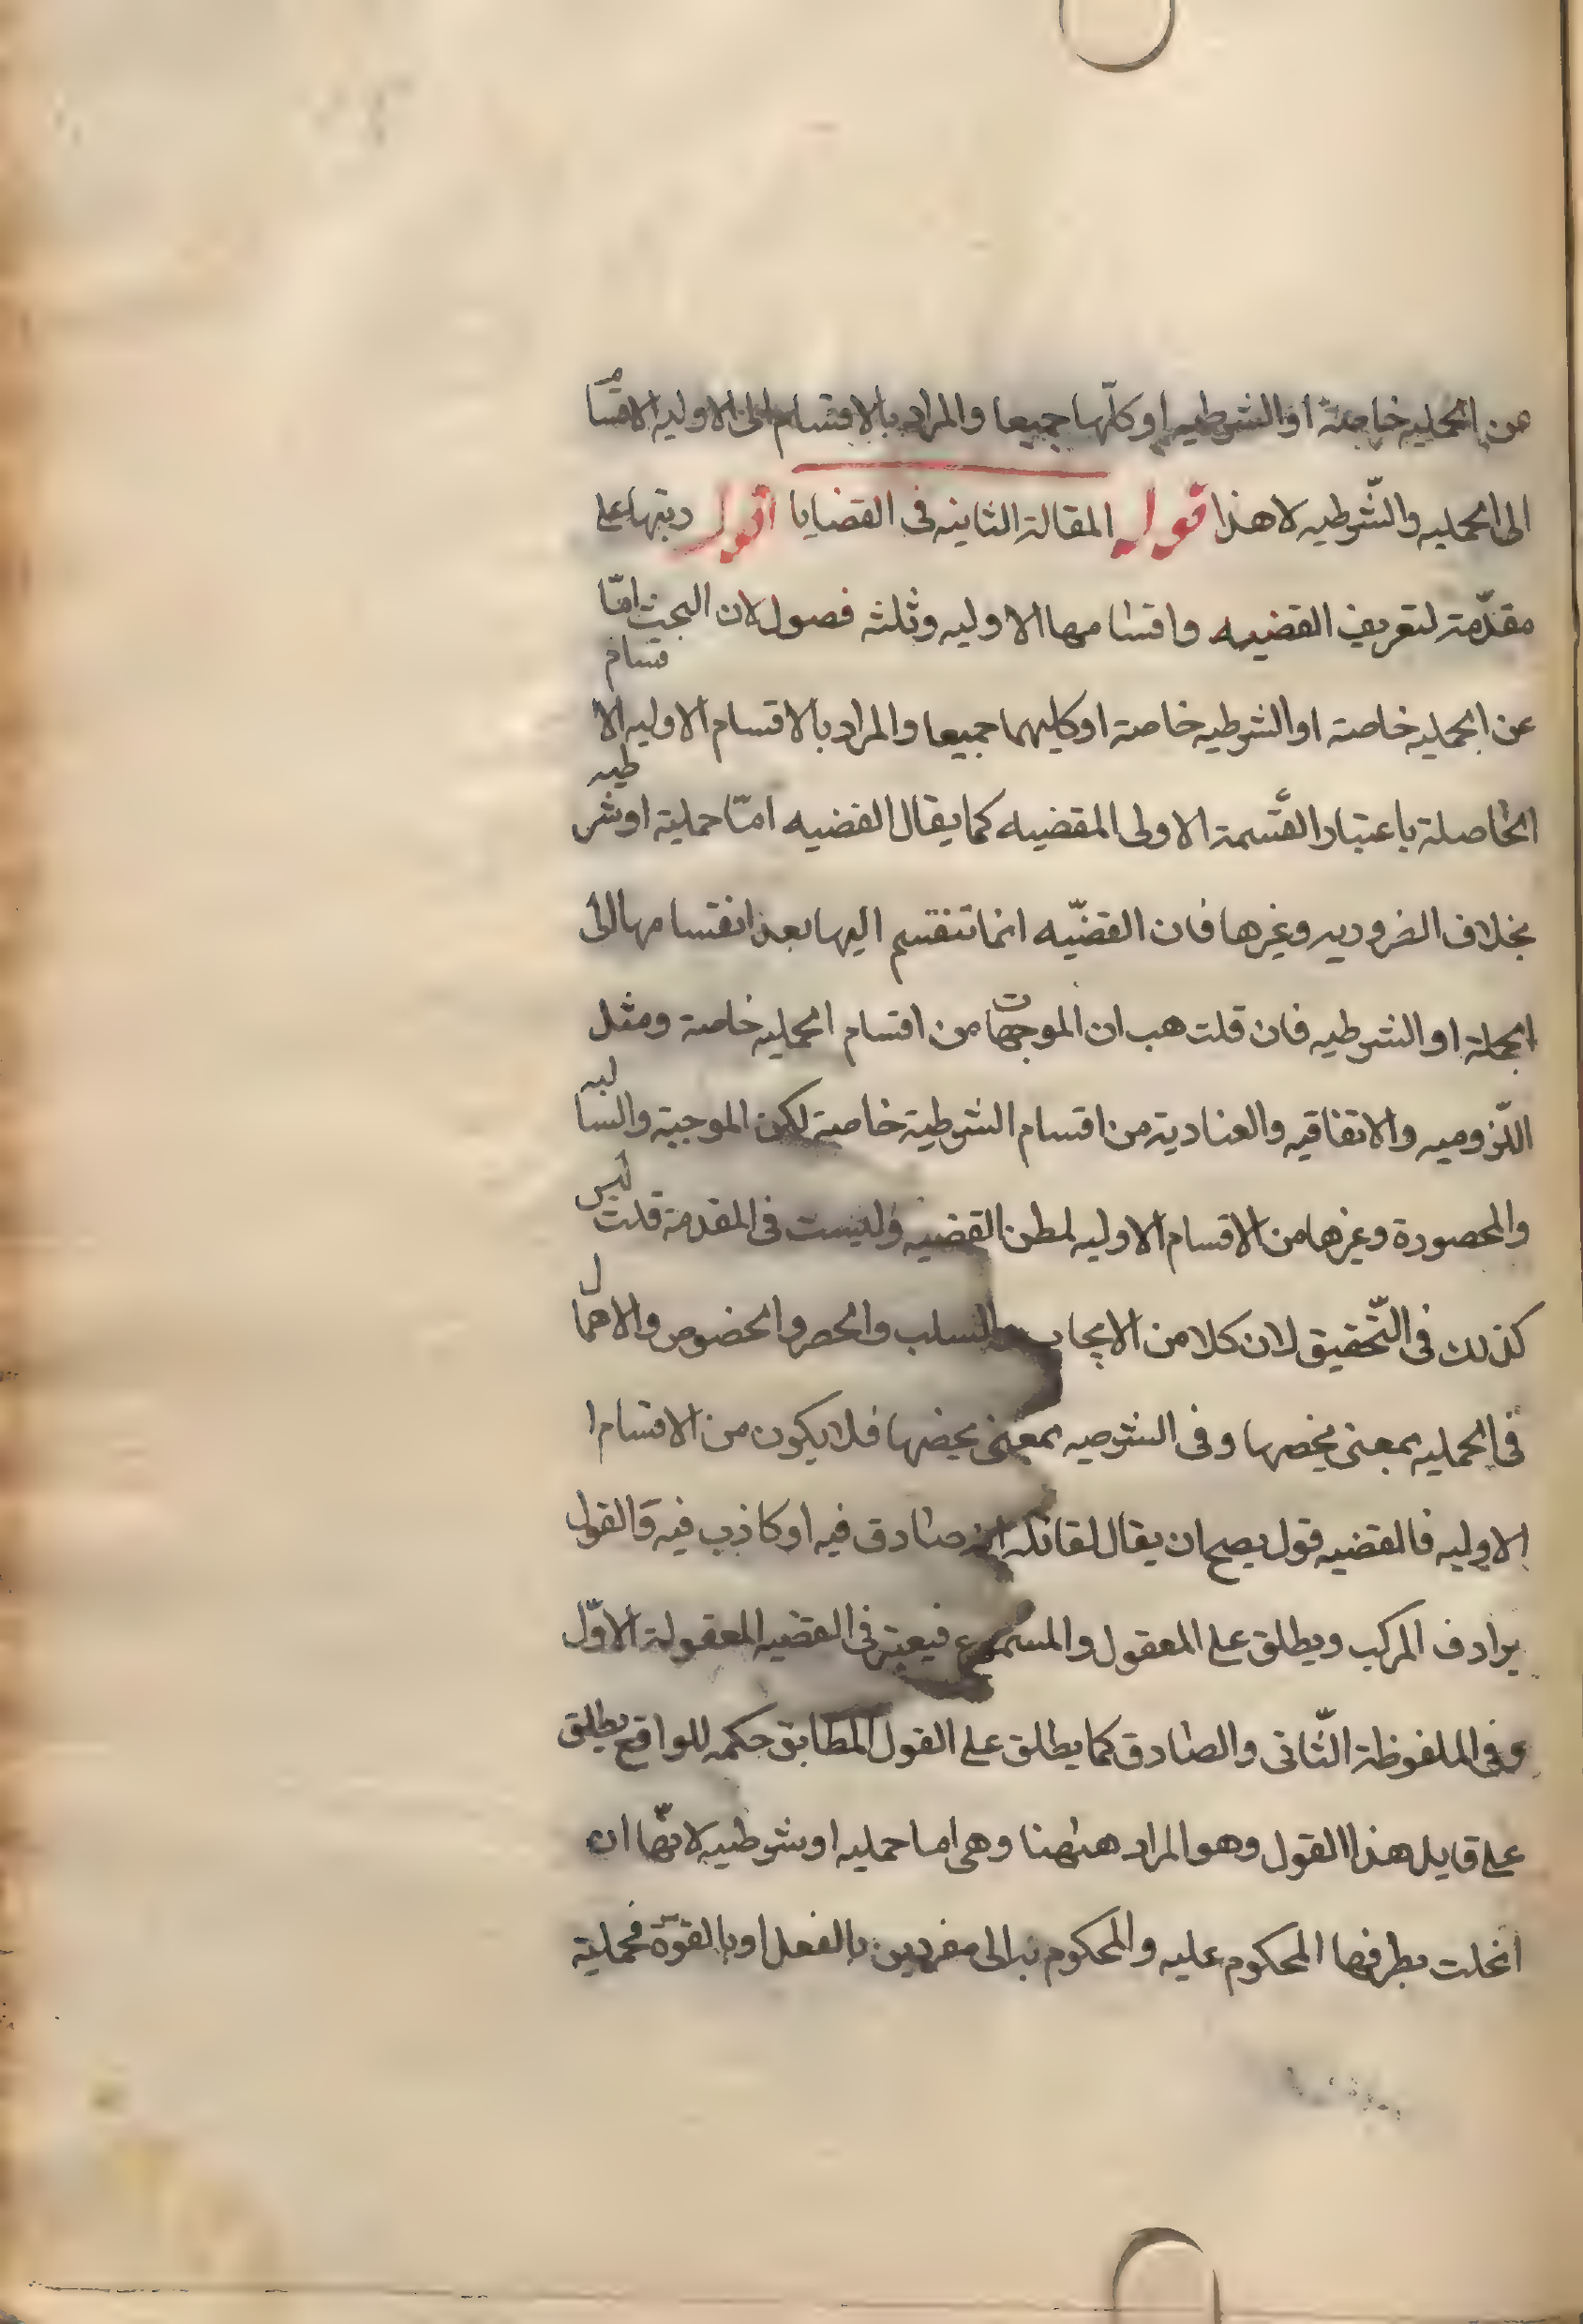 من الحمليه خاصة او الشرطيه او كلّها جميعا والمراد بالاقسام الاوليه الاقسام
الى الحمليه والشّرطيه لا هذا قوله المقالة الثانيه فى القضايا اقول رتبها على
مقدّمة لتعريف القضيه واقسامها الاوليه وثلثه فصول لان البحث امّا
عن الحمليه خاصة او الشرطيه خاصة او كليهما جميعا والمراد بالاقسام الاوليه الاقسام
الحاصلة باعتبار القسمة الاولى المقضيه كما يقال القضيه امّا حملية او شرطيه
بخلاف الضروريه وغيرها فان القضيّه انما تنقسم اليها بعد انقسامها الى
الجملة او الشرطيه فان قلت هب ان الموجهات من اقسام الحمليه خاصة ومثل
اللّزوميه والاتفاقيه والعنادية من اقسام الشرطية خاصة لكن الموجبة والسالبه
والمحصورة وغيرها من الاقسام الاوليه لمطلق القضيه وليست فى المقدمة قلت ليس
كذلك فى التّحقيق لان كلا من الايجاب والسلب والحصر والخصوص والاهمال
فى الحمليه بمعنى يخصها وفى الشرصيه بمعنى يخصها فلا يكون من الاقسام ا
الاوليه فالقضيه قول يصح ان يقال لقائله انه صادق فيه او كاذب فيه والقول
يرادف المركب ويطلق على المعقول والمسموع فيعتبر فى القضيه المعقولة الاوّل
وفى الملفوظة الثّانى والصادق كما يطلق على القول المطابق حكمه للواقع يطلق
على قايل هذا القول وهو المراد ههنا وهى اما حمليه او شرطيه لانّها ان
انحلت بطرفيها المحكوم عليه والمحكوم به الى مفردين بالفعل او بالقوّة فحملية